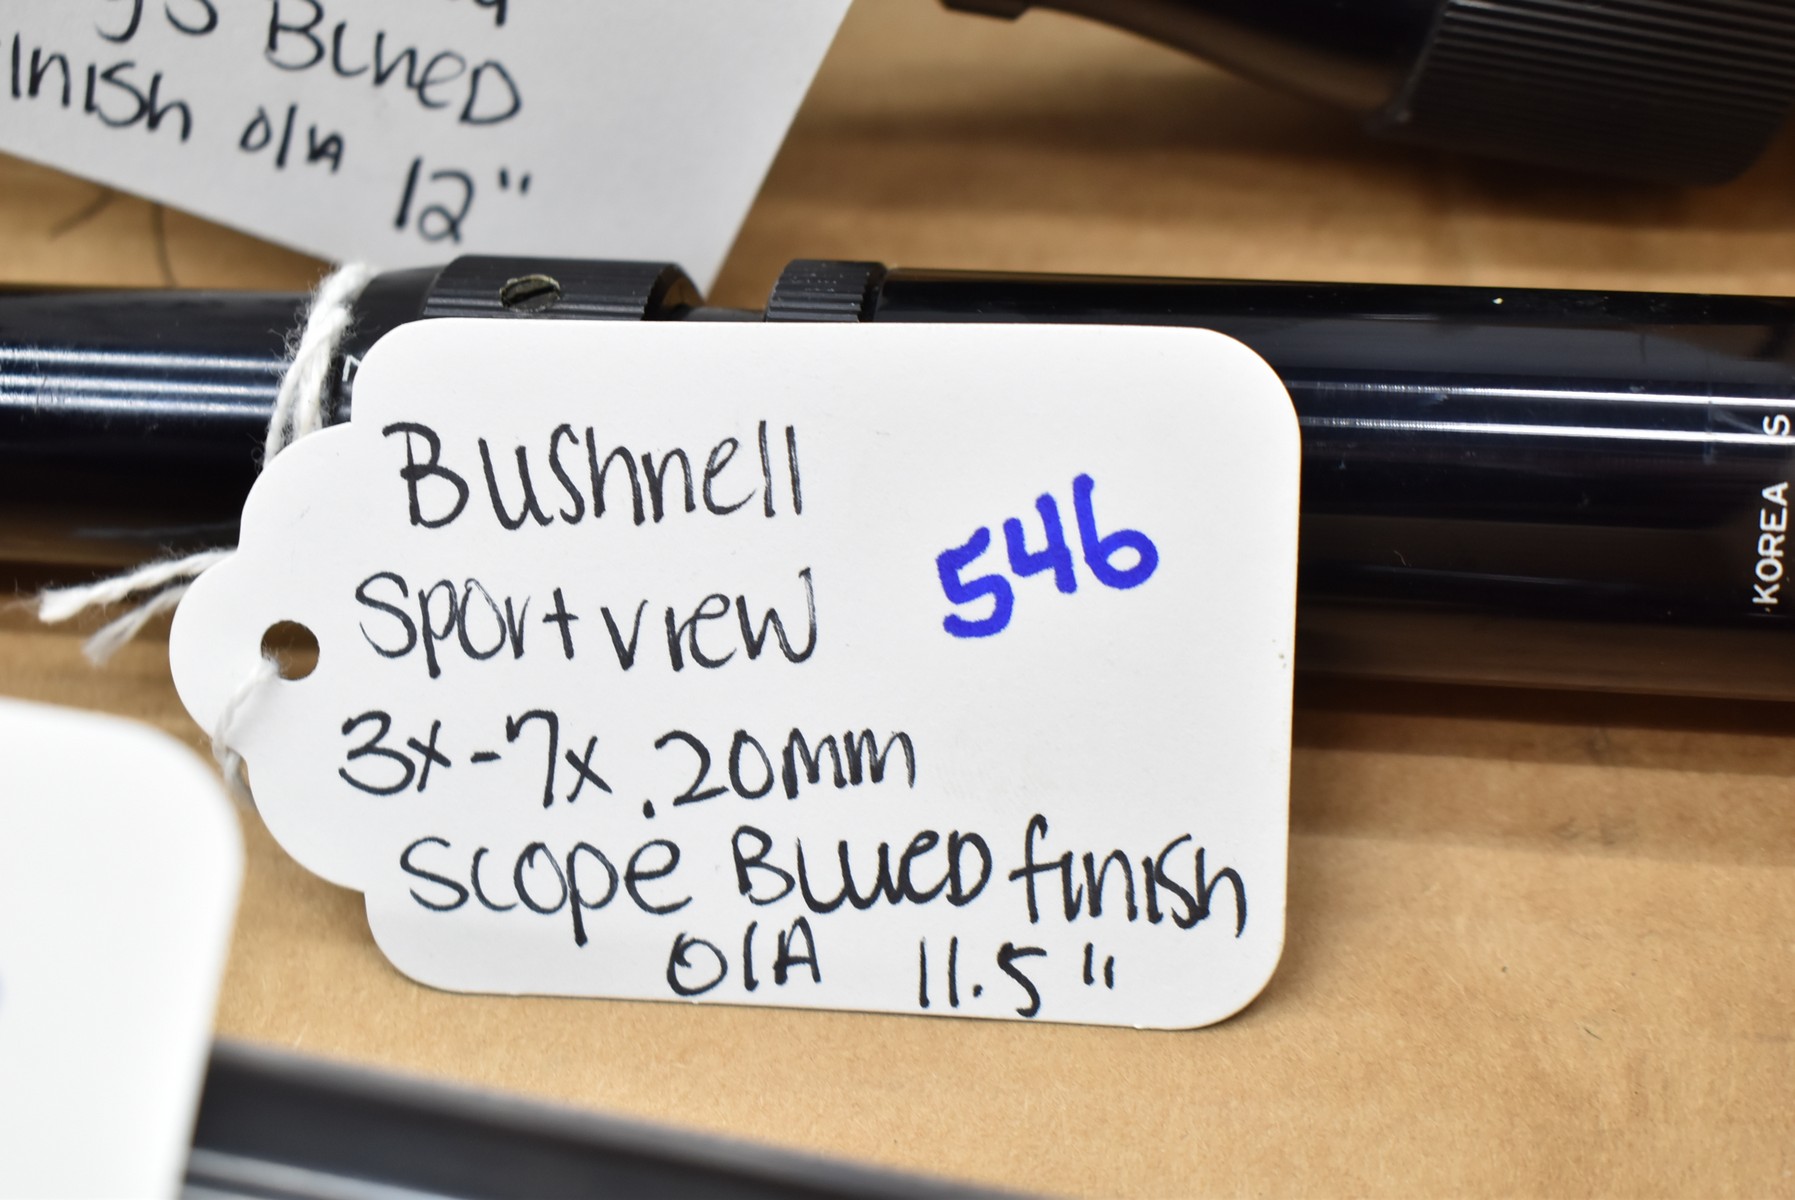 BLUED
finish O/A 12"
Bushnell
Sportview
3x-7x 20mm
scope BLUED finish
O/A 11.5"
546
KOREA S